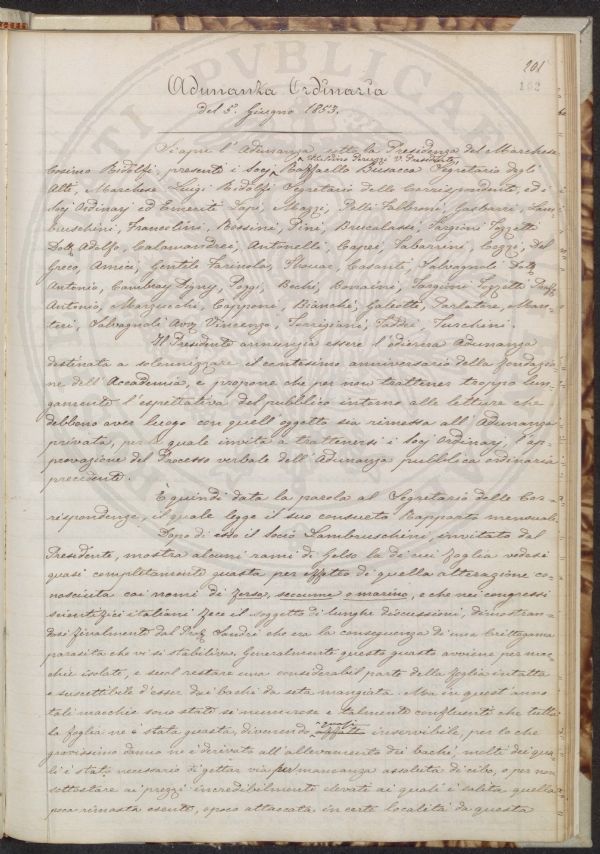 201
182
Adunanza Ordinaria
del 5. Giugno 1853.
Si apre l'Adunanza sotto la Presidenza del Marchese
Ubaldino Peruzzi V. Presidente,
Cosimo Ridolfi, presenti i Socj Raffaello Busacca Segretario degli
Atti, Marchese Luigi Ridolfi Segretario delle Corrispondenze, ed i
Socj Ordinarj ed Emeriti Papi, Mazzi, Pelli Fabbroni, Gasberri, Lam-
bruschini, Francolini, Rossini, Pini, Brucalassi, Targioni Tozzetti
Dott. Adolfo, Calamandrei, Antonelli, Capei, Tabarrini, Cozzi, Del
Greco, Amici, Gentile Farinola, Thouar, Casanti, Salvagnoli Dott.
Antonio, Cambray Digny, Poggi, Bechi, Romanini, Targioni Tozzetti Proff.
Antonio, Marzucchi, Capponi, Bianchi, Galeotti, Parlatore, Mas-
teri, Salvagnoli Avv. Vincenzo, Torrigiani, Taddei, Turchini.
Il Presidente annunzia essere l'odierna Adunanza
destinata a solennizzare il centesimo anniversario della fondazio-
ne dell'Accademia, e propone che per non trattener troppo lun-
gamente l'espettativa del pubblico intorno alle letture che
debbono aver luogo con quell'oggetto sia rimessa all'Adunanza
privata, per la quale invita a trattenersi i Socj Ordinarj, l'ap-
provazione del Processo verbale dell'Adunanza pubblica ordinaria
precedente.
È quindi data la parola al Segretario delle Cor-
rispondenze, il quale legge il suo consueto Rapporto mensuale.
Dopo di esso il Socio Lambruschini, invitato dal
Presidente, mostra alcuni rami di Gelso la di cui foglia vedesi
quasi completamente guasta per effetto di quella alterazione co-
nosciuta coi nomi di fersa, seccume o marino, e che nei congressi
scientifici italiani fece il soggetto di lunghe discussioni, dimostran-
dosi finalmente dal Prof. Sandri che era la conseguenza di una Crittogama
parasita che vi si stabiliva. Generalmente questo guasto avviene per mac-
chie isolate, e suol restare una considerabil parte della foglia intatta
e suscettibile d'esser dai bachi da seta mangiata. Ma in quest'anno
tali macchie sono state sì numerose e talmente confluenti che tutta
la foglia ne è stata guasta, divenendo quasi inservibile, per lo che
gravissimo danno ne è derivato all'allevamento dei bachi molti dei qua-
li è stato necessario di gettar via per mancanza assoluta di cibo, o per non
sottostare ai prezzi incredibilmente elevati ai quali è salita quella
poca rimasta esente, o poco attaccata, in certe località da questa